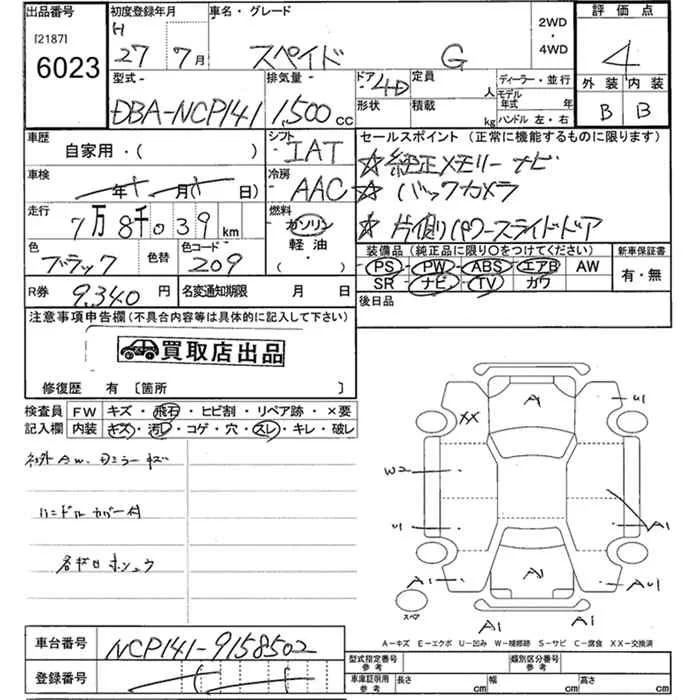 出品番号 初度登録年月 車名・グレード 2WD・4WD 評価点
[2187] H 27 7月 スペイド G 4
6023
型式 排気量 ドア 4D 定員 人 ディーラー・並行 外装 内装
モデル年式 年
DBA-NCP141 1,500cc 形状 積載 kg ハンドル 左・右 B B
車歴 シフト セールスポイント (正常に機能するものに限ります)
自家用・( ) IAT ☆純正メモリーナビ
車検 年 月( 日) 冷房 AAC ☆バックカメラ
走行 7万8千039km 燃料 ガソリン 軽油 ( ・ ) ☆片側パワースライドドア
色 ブラック 色替 色コード 209 装備品 (純正品に限り○をつけてください) 新車保証書
PS・PW・ABS・エアB AW 有・無
SR ナビ・TV カワ
R券 9,340円 名変通知期限 月 日 後日品
注意事項申告欄(不具合内容等は具体的に記入して下さい)
買取店出品
修復歴 有 〔箇所 〕
検査員 FW キズ・飛石・ヒビ割・リペア跡・×要
記入欄 内装 キズ・汚レ・コゲ・穴・スレ・キレ・破レ
ハンドルカバー付
A
U1
XX
W2
U1
A1
A1
A1
AU1
スペア
A1
A1
A−キズ E−エクボ U−凹み W−補修跡 S−サビ C−腐食 XX−交換済
車台番号 NCP141-9158502
登録番号
型式指定番号 参考 類別区分番号 参考
車庫証明用 参考 長さ cm 幅 cm 高さ cm